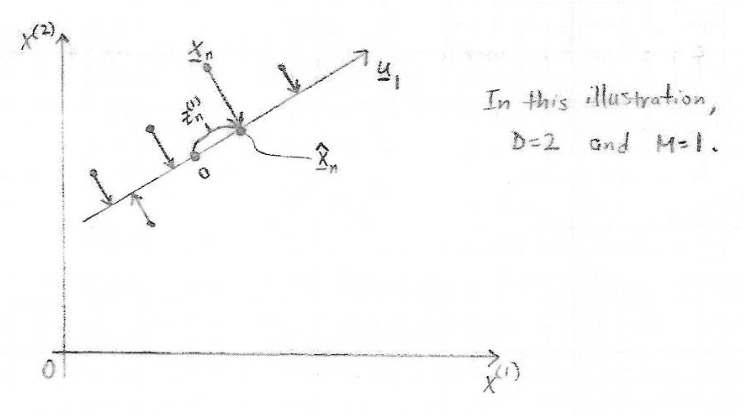 X⁽²⁾
x̲ₙ
u̲₁
zₙ⁽¹⁾
0
x̲̂ₙ
In this illustration,
D=2 and M=1.
0
X⁽¹⁾